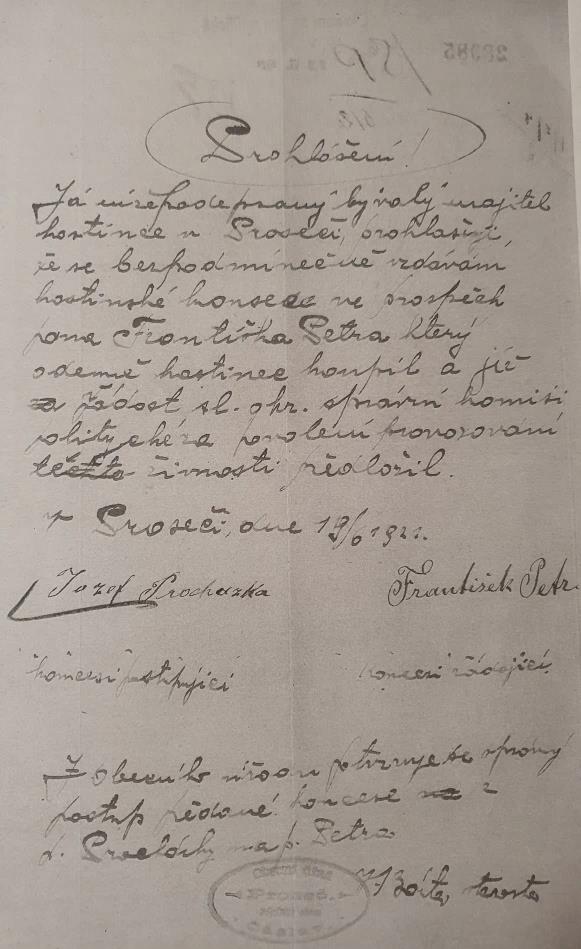 28985
Prohlášení!
Já nížepodepsaný bývalý majitel
hostince v Prosečí, prohlašuji,
že se bezpodmínečně vzdávám
hostinské konsece ve prospěch
pana Františka Petra který
odemě hostinec koupil a již
žádost sl. okr. správní komisi
politycké za povolení provosování
těchto živnosti předložil.
V Prosečí, dne 19/6 1921.
Jozef Prochazka František Petr.
koncesi postupující koncesi žádající
Z obecního úřadu potvrzuje se správný
postup předané koncese z
p. Procházky na p. Petra
starosta
Obecní úřad
Proseč.
Čáslav.